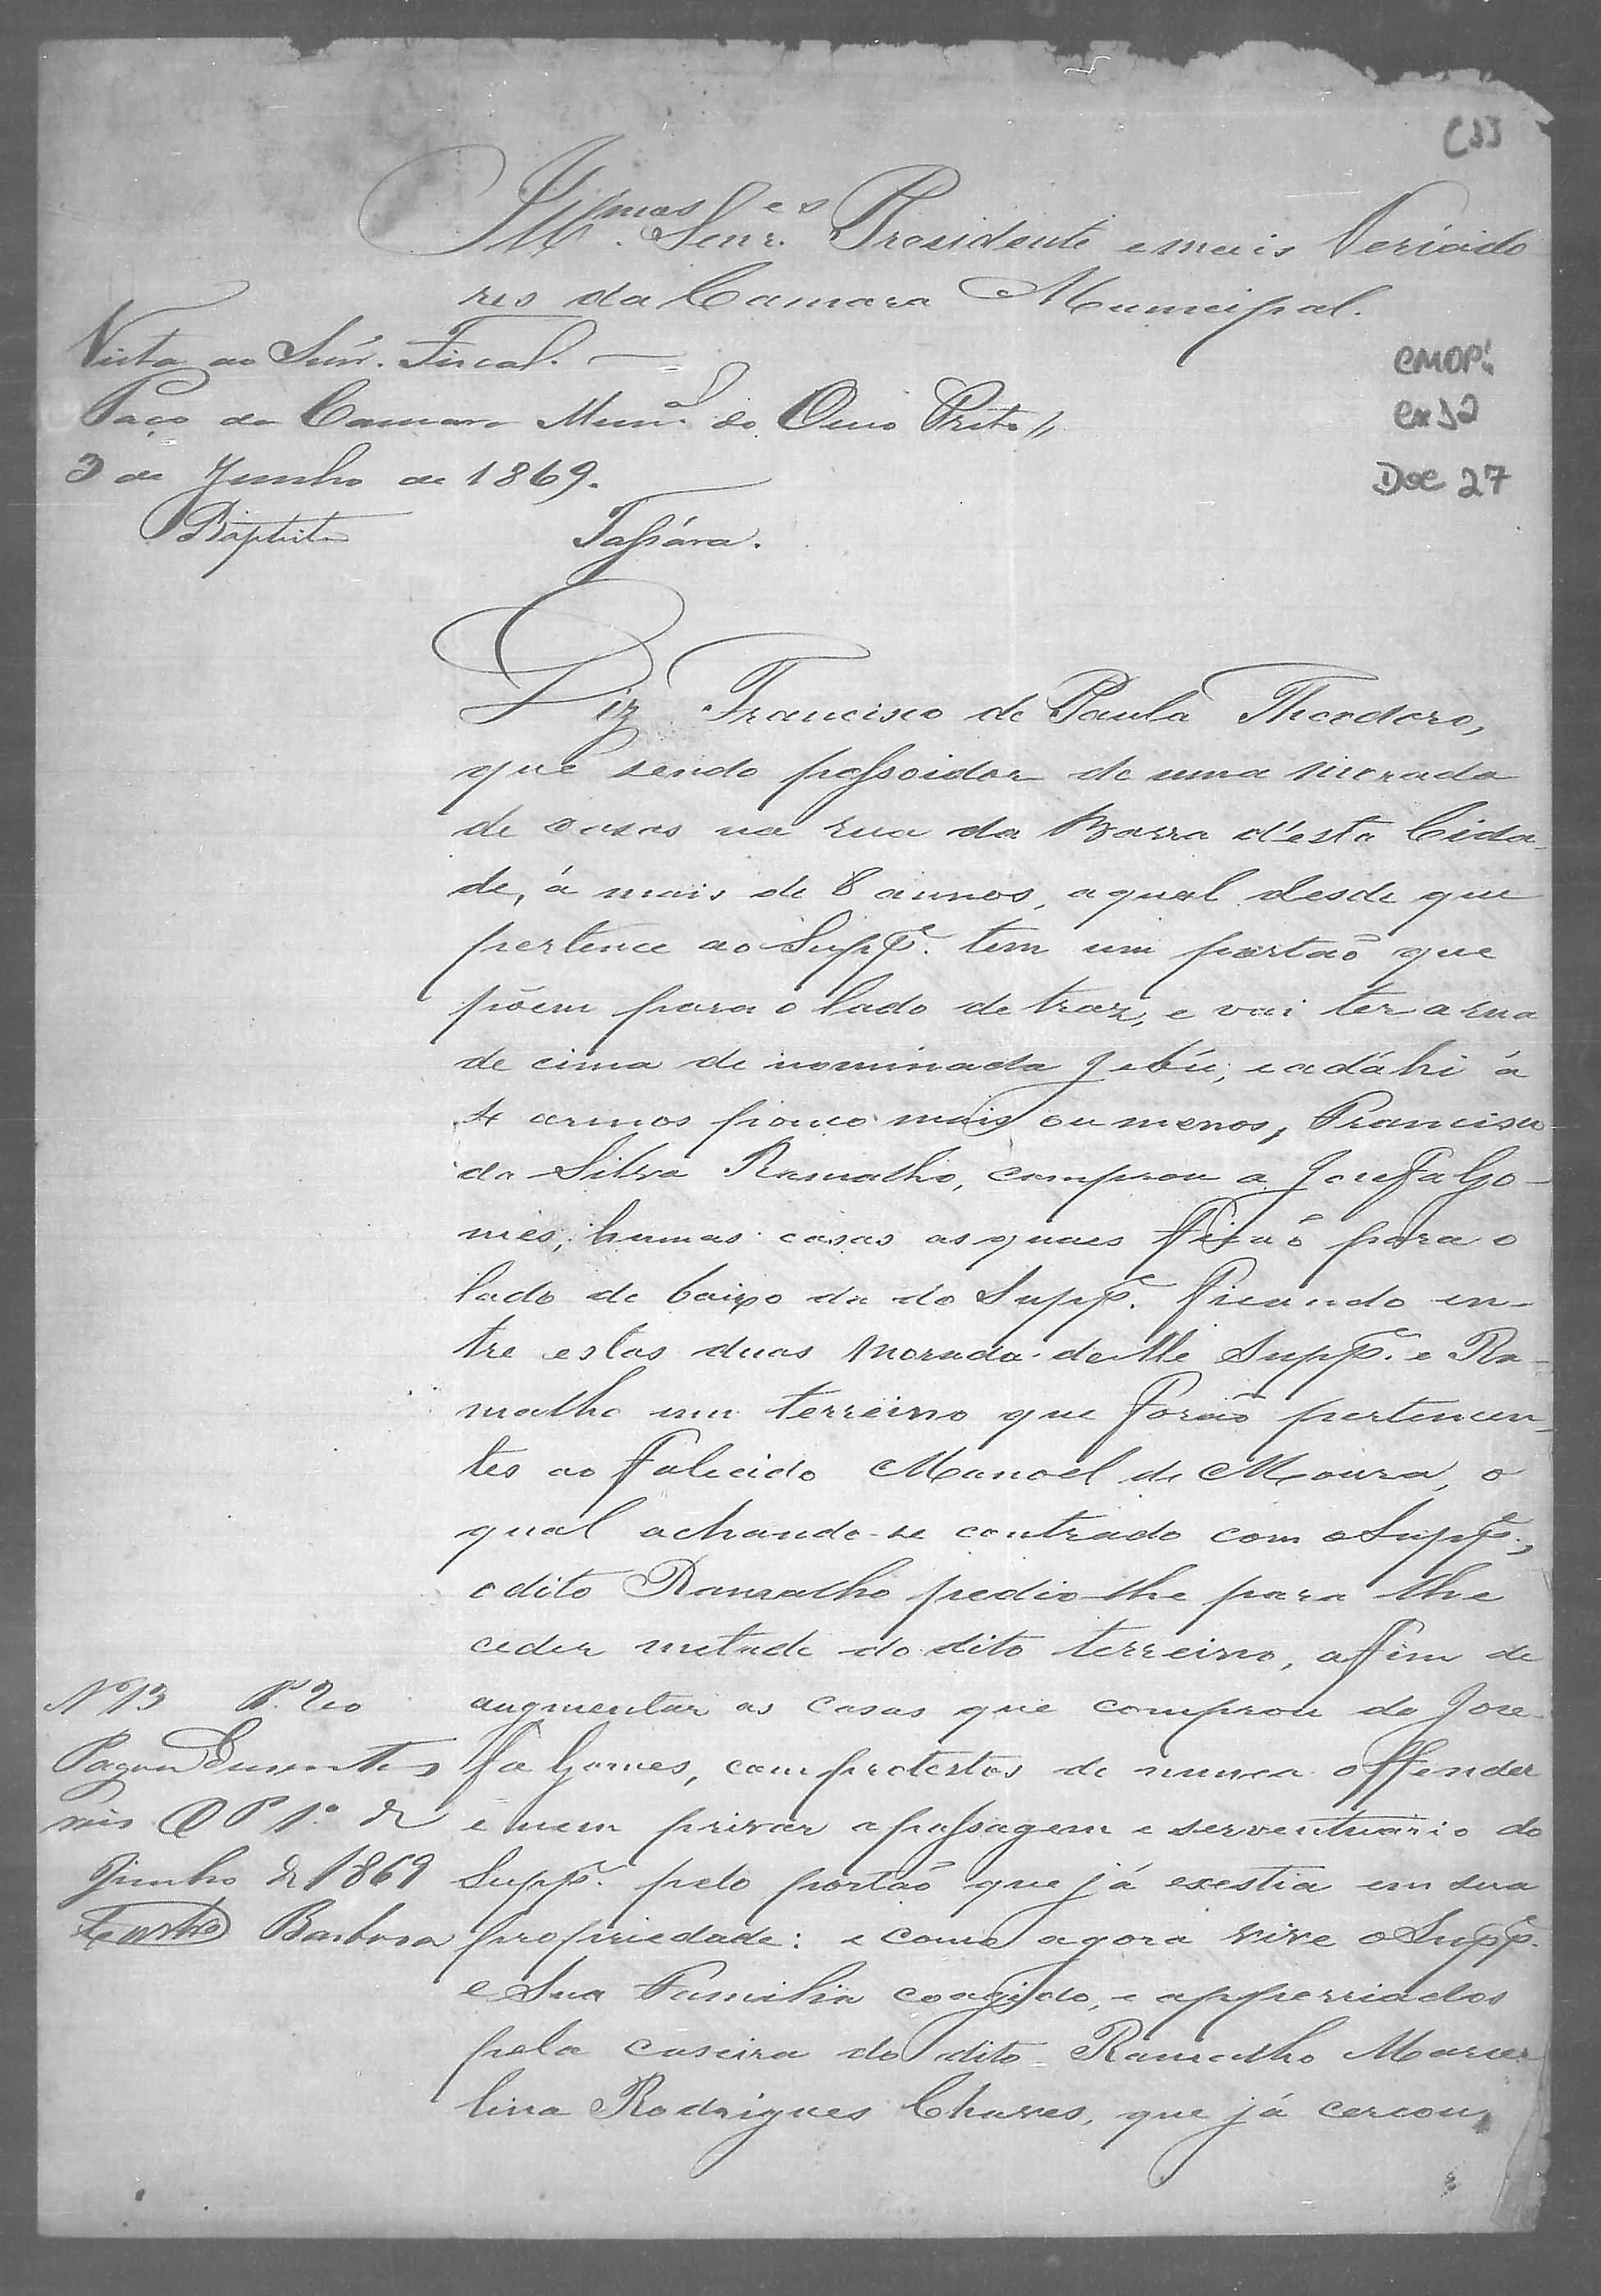 C33
Ill.mos Senr.es Presidente e mais Veriado
res da Camara Municipal.
Vista ao Snr. Fiscal.
Paço da Camara Mun.al do Ouro Preto
3 de Junho de 1869.
Baptista Tassára.
CMOP
cx 32
Doc 27
Diz Francisco de Paula Theodoro,
que sendo possoidor de uma morada
de casas na rua da Barra d'esta Cida-
de, á mais de 8 annos, a qual desde que
pertence ao Supp.e tem um portaõ que
põem para o lado de traz, e vai ter a rua
de cima de nominada Jebú; e adáhi á
4 annos pouco mais ou menos, Francisco
da Silva Ramalho, comprou a Josefa Go-
mes, humas casas as quaes ficaõ para o
lado de baixo da do Supp.e ficando en-
tre estas duas morada delle Supp.e e Ra-
malho um terreino que foraõ pertencen-
tes ao falecido Manoel de Moura, o
qual achando-se contrado com o Supp.e,
o dito Ramalho pedio-lhe para lhe
ceder metade do dito terreino, affim de
augmentar as casas que comprou de Jose-
fa Gomes, com protestos de nunca offender
e nem privar a passagem e serventuario do
Supp.e pelo portaõ que já exestia em sua
propriedade: e como agora vive o Supp.e
e Sua Familia coagido, e apperriados
pela caseira do dito Ramalho Marcel
lina Rodrigues Chaves, que já cercou,
Nº 13 R.s 200
Pagou Duzentos
reis OP 1º de
Junho de 1869
Castro Barbosa